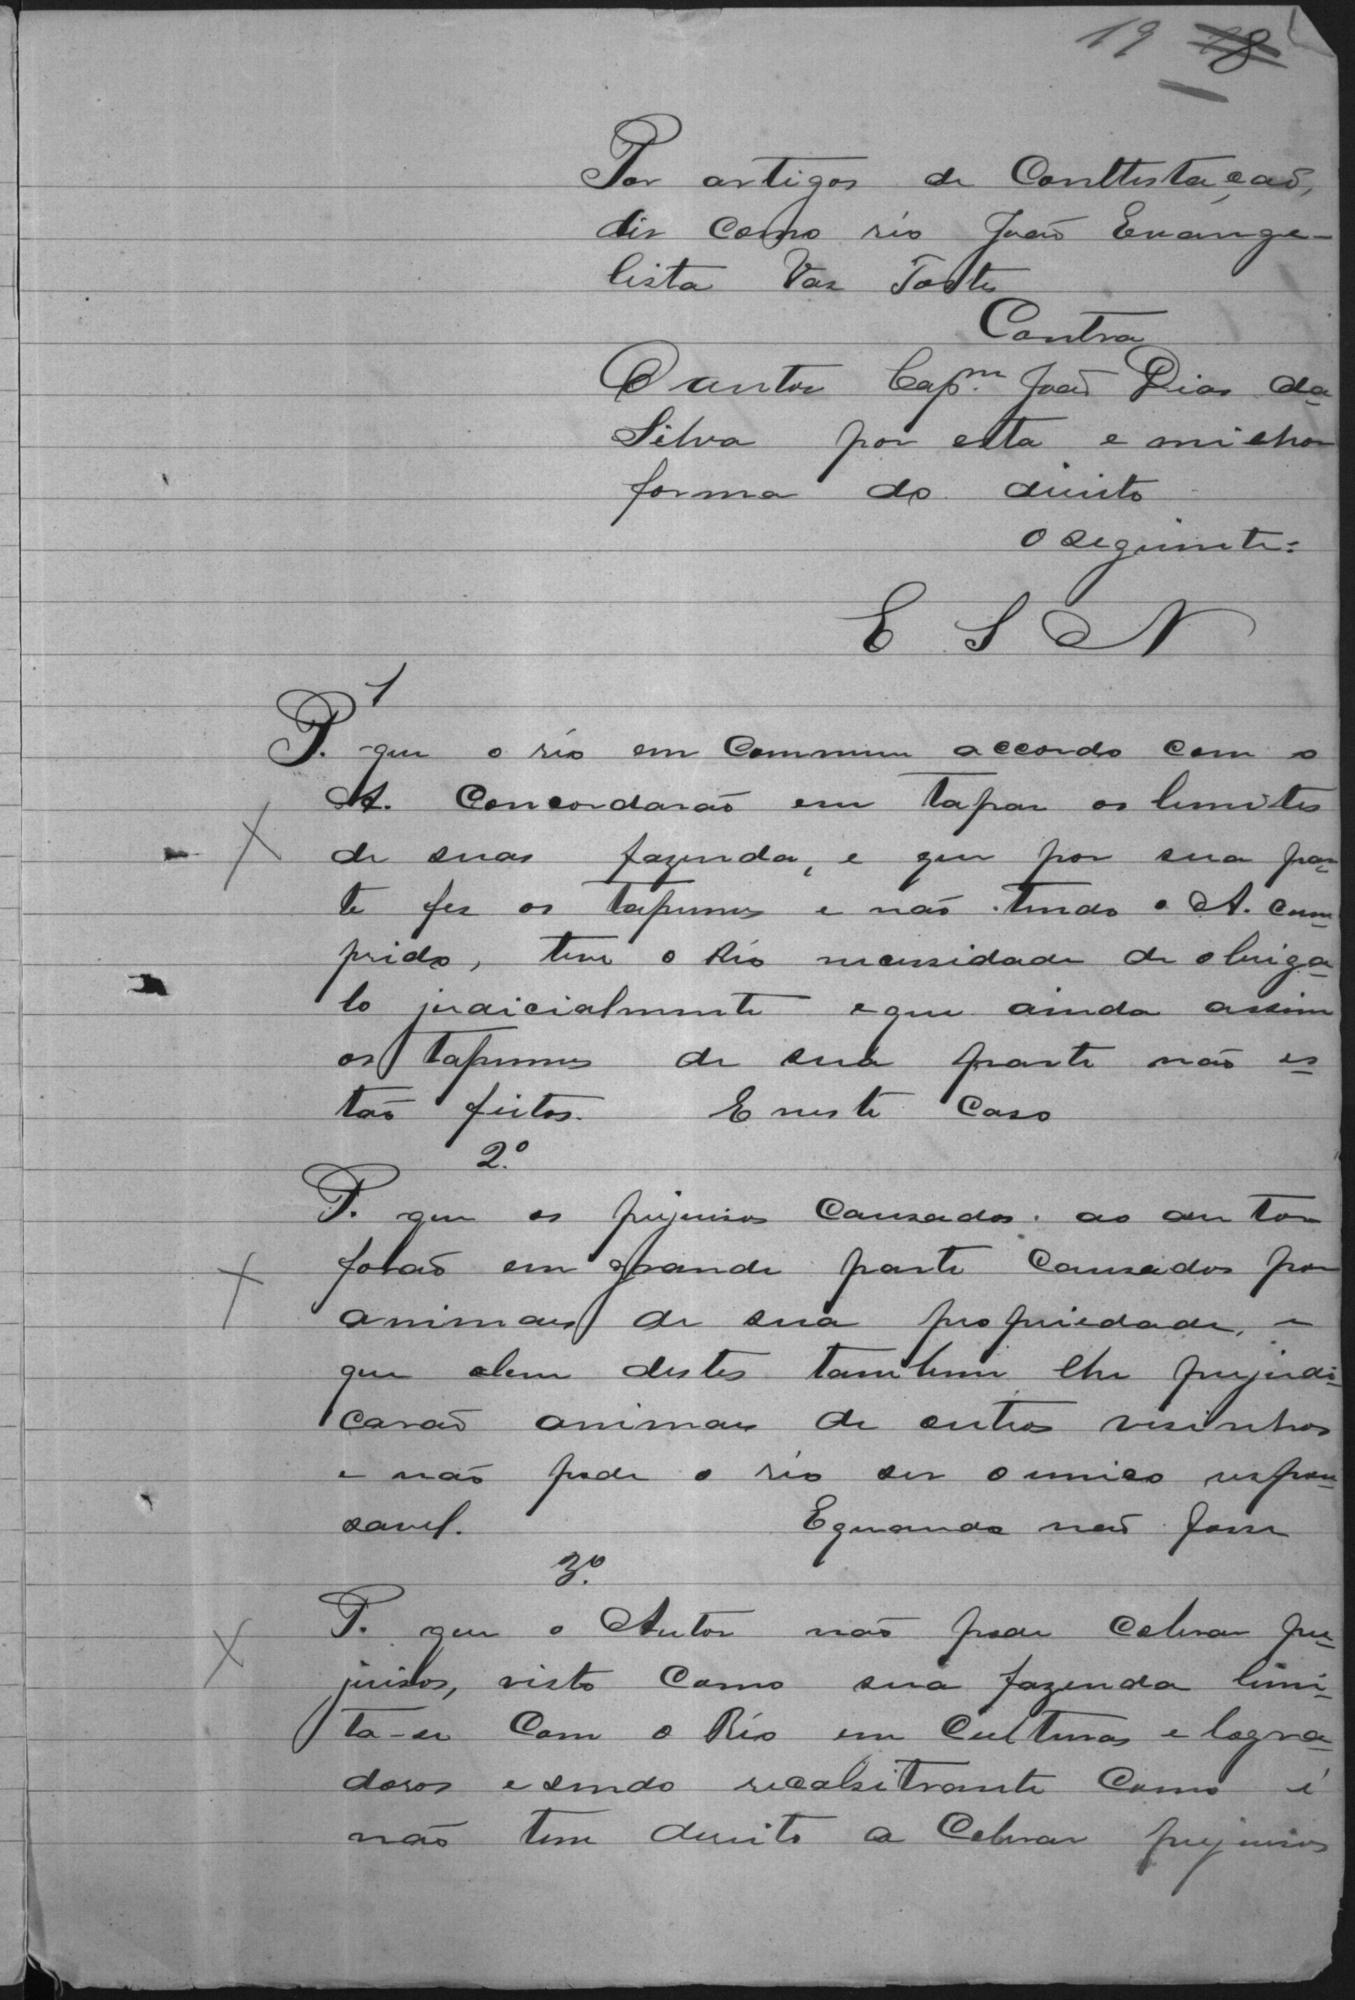 19 18
Por artigos de Conttestação,
diz como réo João Evange-
lista Vaz Tostes
Contra
O autor Cap.m João Dias da
Silva por esta e milhor
forma do direito
o seguinte:
E S N
1
P. que o réo em commum accordo com o
A. concordarão em tapar os limites
de suas fazenda, e que por sua par-
te fez os tapumes e não tendo o A. cum-
prido, teve o Réo necessidade de obriga-
lo judicialmente e que ainda assim
os tapumes de sua parte não es-
tão feitos. E neste caso
2.º
P. que os prejuisos causados ao autor
forão em grande parte causados por
animaes de sua propriedade, e
que alem destes tambem lhe prejudi-
carão animaes de outros visinhos
e não pode o réo ser o unico respon-
savel. E quando não fosse
3.º
P. que o Autor não pode cobrar pre-
juisos, visto como sua fazenda limi-
ta-se com o Réo em culturas e logra-
doros e sendo recalsitrante como é
não tem direito a cobrar prejuisos